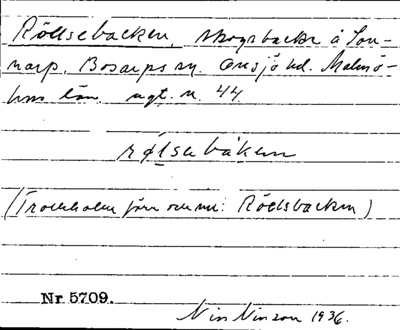 Röllsebacken, skogsbacke å Son-
narp, Bosarps sn. Onsjö hd. Malmö-
hus län. ugt. n. 44
rølsebaken
(Troexholm förr Rödsbacken)
Nr 5709.
Nils Ninson 1936.